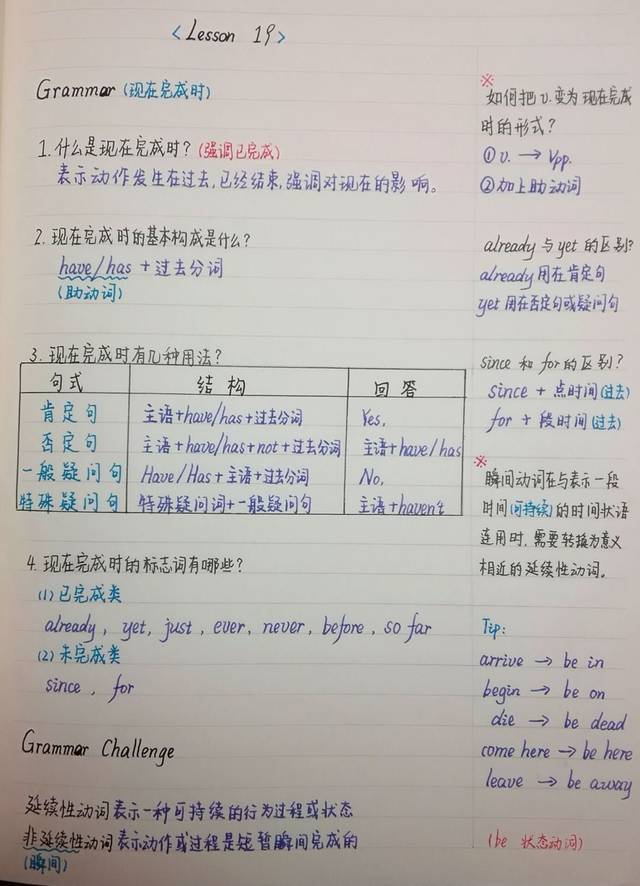 <Lesson 19>
Grammar (现在完成时)
1. 什么是现在完成时? (强调已完成)
表示动作发生在过去,已经结束,强调对现在的影响。
2. 现在完成时的基本构成是什么?
have/has + 过去分词
(助动词)
3. 现在完成时有几种用法?
句式 结构 回答
肯定句 主语+have/has+过去分词 Yes,
否定句 主语+have/has+not+过去分词 主语+have/has
一般疑问句 Have/Has+主语+过去分词 No,
特殊疑问句 特殊疑问词+一般疑问句 主语+haven't
4. 现在完成时的标志词有哪些?
(1) 已完成类
already, yet, just, ever, never, before, so far
(2) 未完成类
since, for
Grammar Challenge
延续性动词表示一种可持续的行为过程或状态
非延续性动词表示动作或过程是短暂瞬间完成的
(瞬间)
※
如何把v.变为现在完成
时的形式?
①v. → Vpp.
②加上助动词
already 与 yet 的区别?
already 用在肯定句
yet 用在否定句或疑问句
since 和 for 的区别?
since + 点时间(过去)
for + 段时间(过去)
※
瞬间动词在与表示一段
时间(可持续)的时间状语
连用时,需要转换为意义
相近的延续性动词。
Tip:
arrive → be in
begin → be on
die → be dead
come here → be here
leave → be away
(be 状态动词)